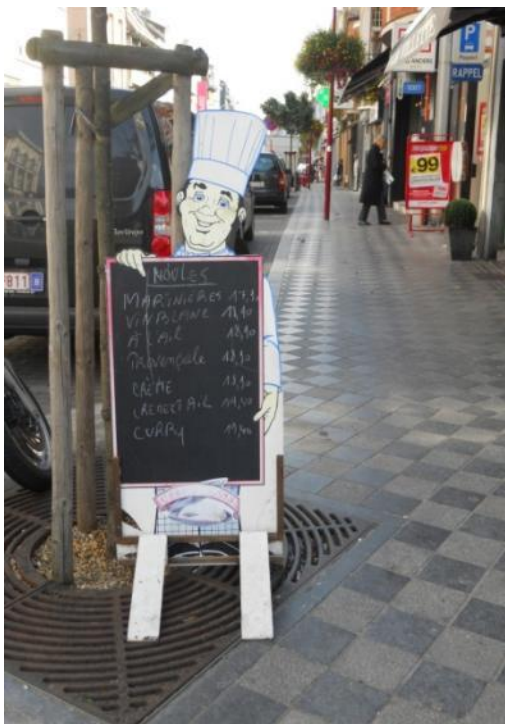 P
RAPPEL
€99
Berlingo
P811
MOULES
MARINIÈRES 17,90
VIN BLANC 18,90
A L'AIL 18,90
PROVENÇALE 18,90
CRÈME 18,90
CREME ET AIL 19,40
CURRY 19,40